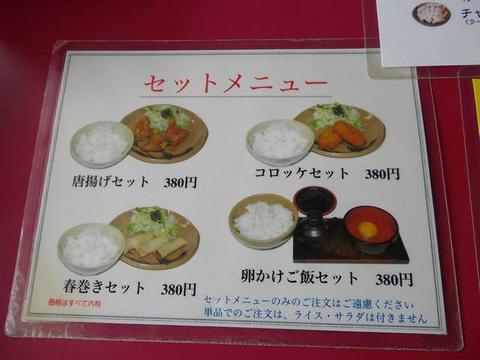 セットメニュー
唐揚げセット 380円
コロッケセット 380円
春巻きセット 380円
卵かけご飯セット 380円
価格はすべて内税
セットメニューのみのご注文はご遠慮ください
単品でのご注文は、ライス・サラダは付きません